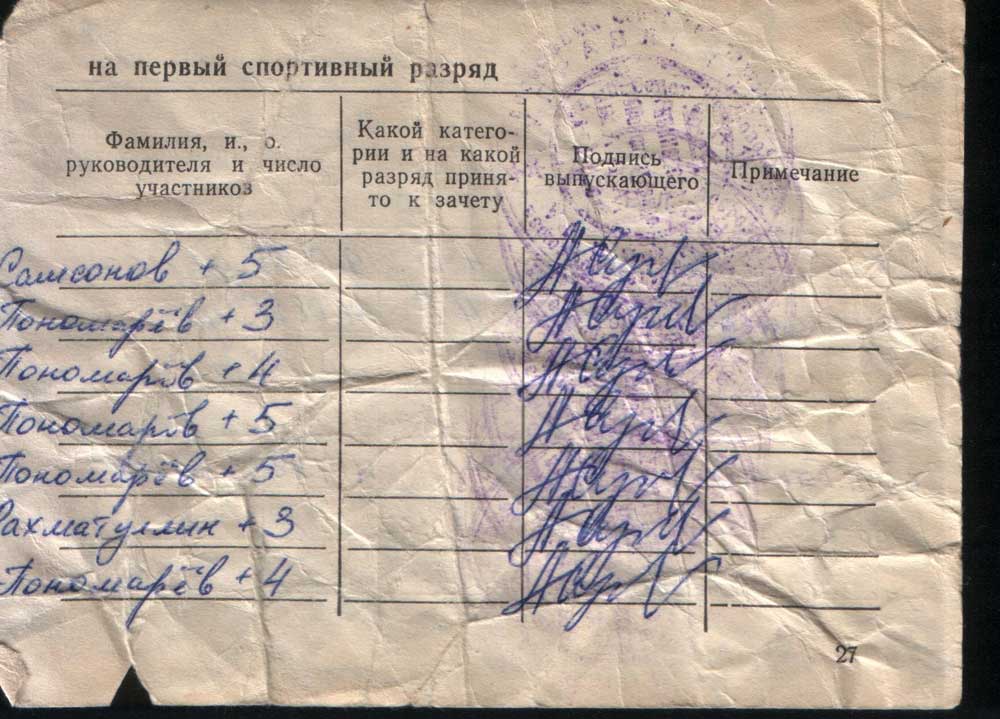 на первый спортивный разряд
Фамилия, и., о.
руководителя и число
участников
Какой катего-
рии и на какой
разряд приня-
то к зачету
Подпись
выпускающего
Примечание
Самсонов + 5
Пономарёв + 3
Пономарёв + 4
Пономарёв + 5
Пономарёв + 5
Рахматуллин + 3
Пономарёв + 4
27